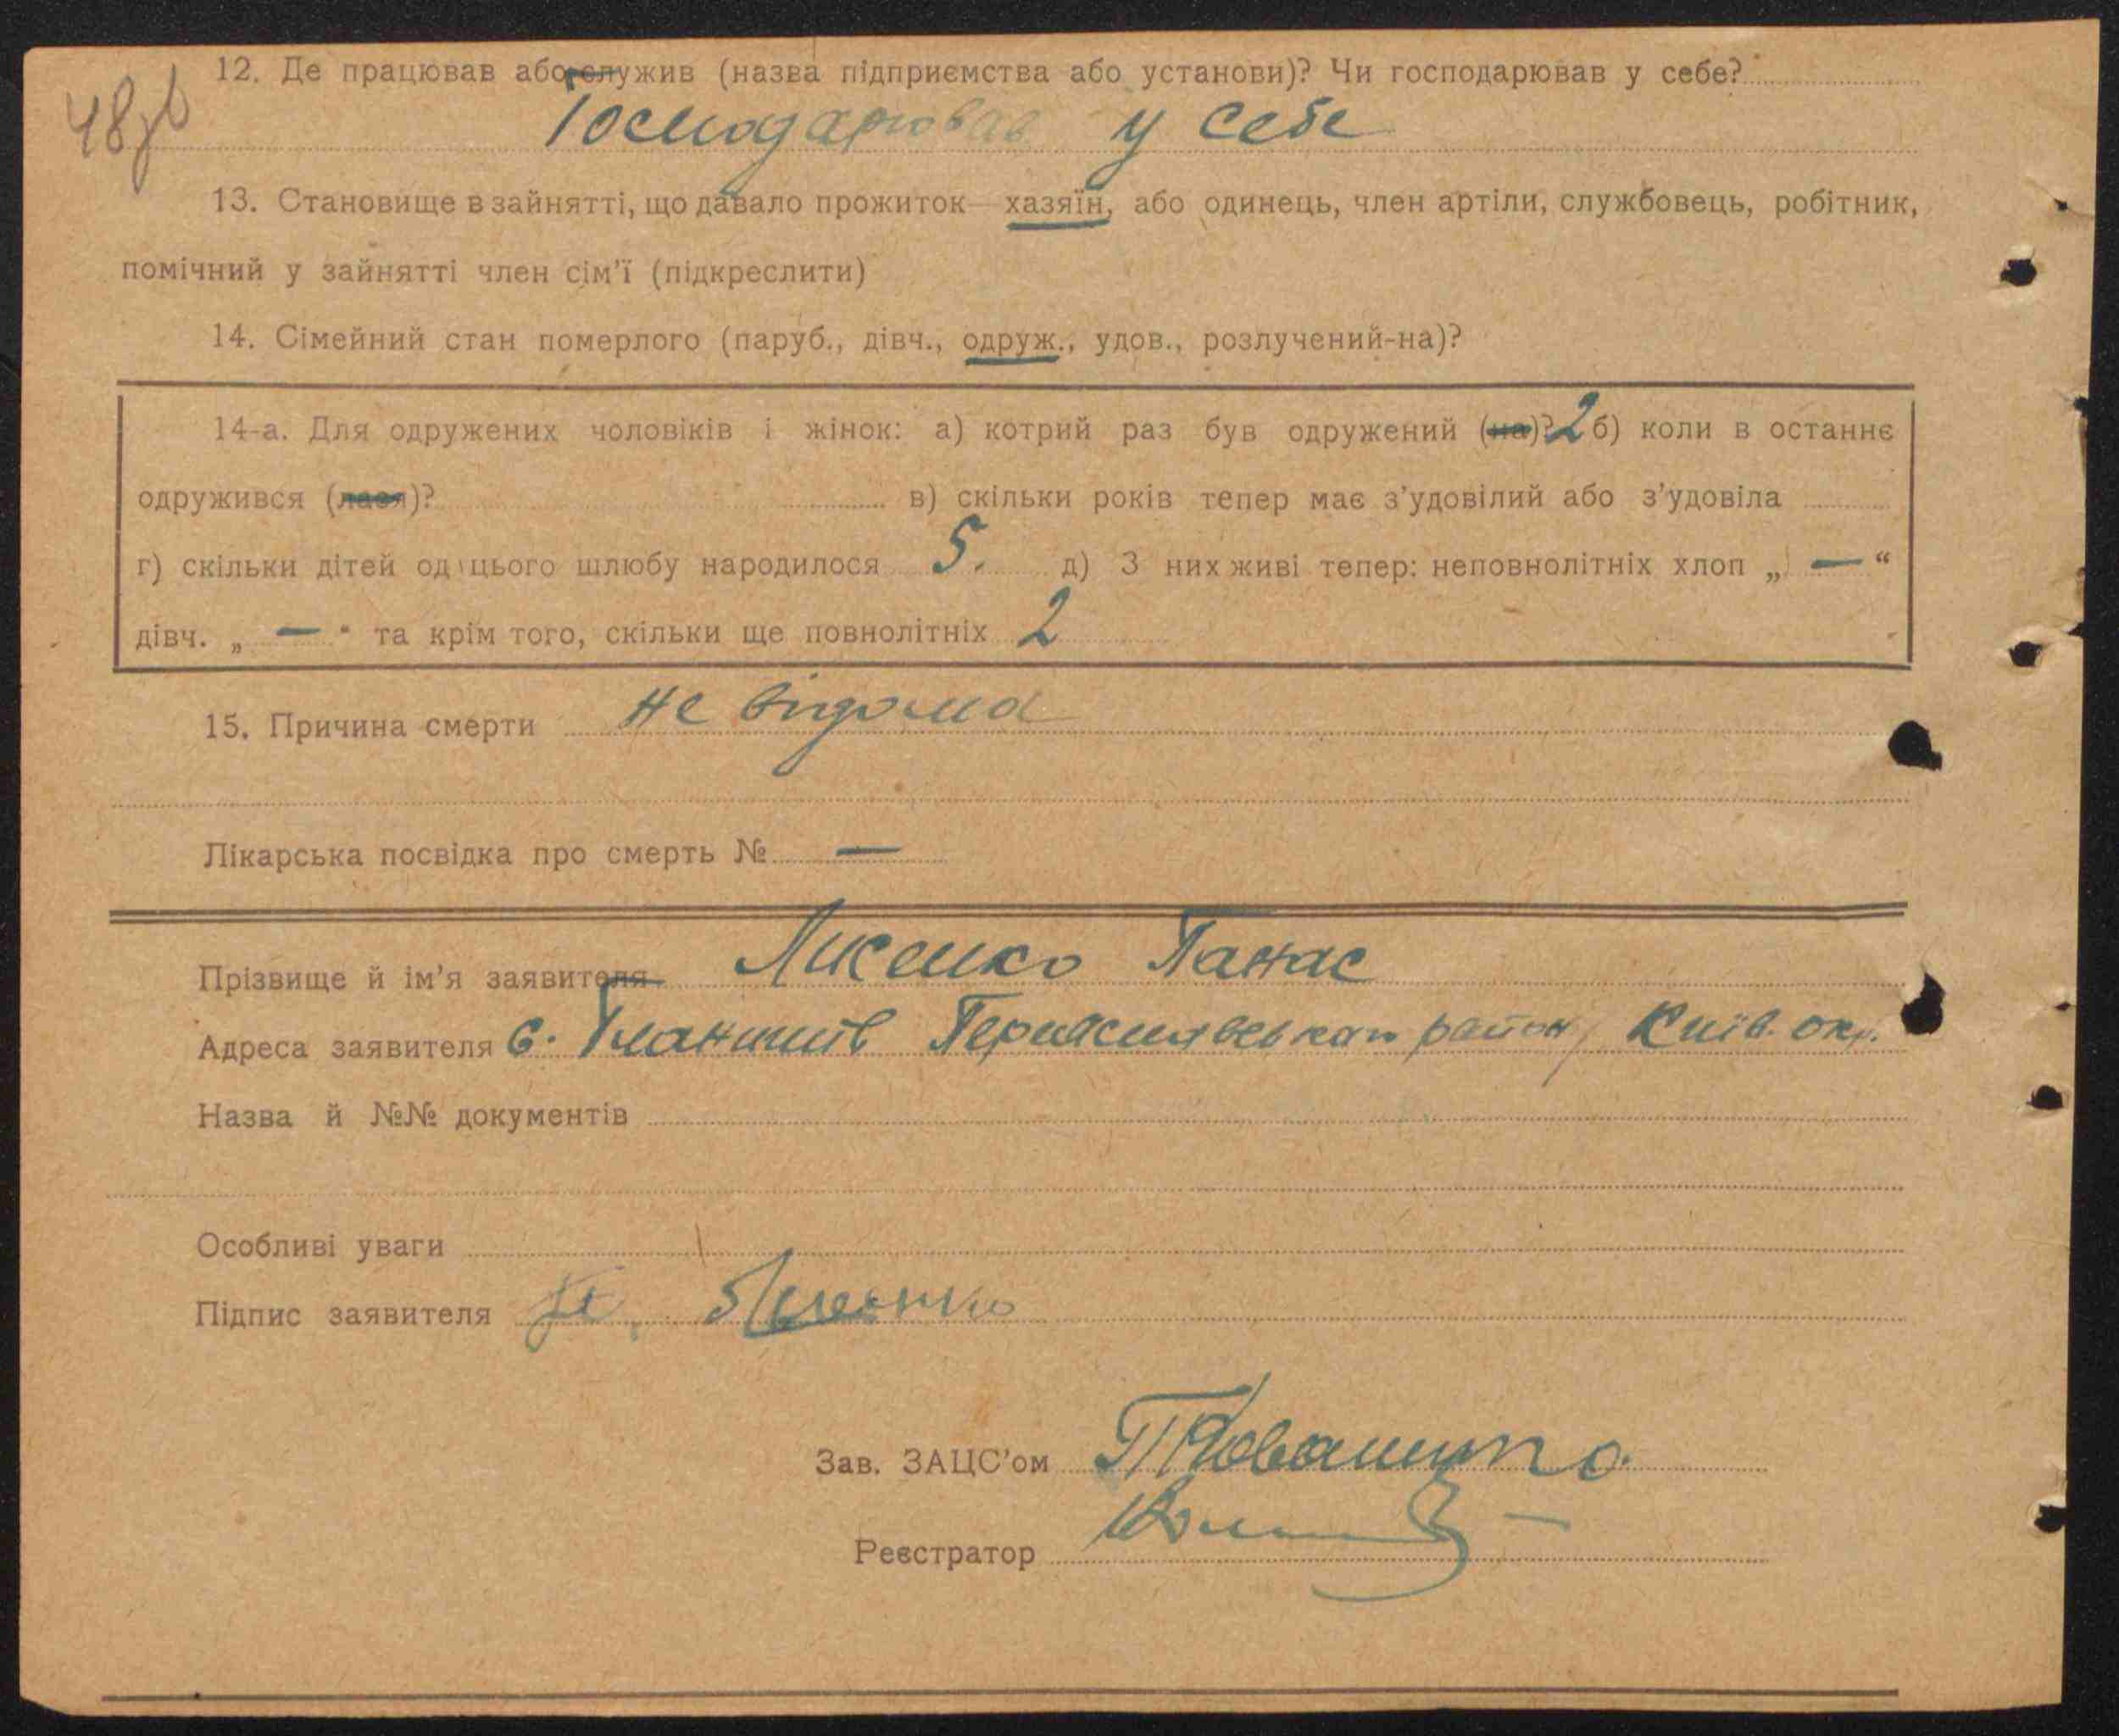 48зв
12. Де працював або служив (назва підприємства або установи)? Чи господарював у себе?
Господарював у себе
13. Становище в зайнятті, що давало прожиток — хазяїн, або одинець, член артіли, службовець, робітник,
помічний у зайнятті член сім'ї (підкреслити)
14. Сімейний стан померлого (паруб., дівч., одруж., удов., розлучений-на)?
14-а. Для одружених чоловіків і жінок: а) котрий раз був одружений (на)? 2 б) коли в останнє
одружився (лася)? в) скільки років тепер має з'удовілий або з'удовіла
г) скільки дітей од цього шлюбу народилося 5. д) З них живі тепер: неповнолітніх хлоп „ — “
дівч. „ — “ та крім того, скільки ще повнолітніх 2
15. Причина смерти не відома
Лікарська посвідка про смерть № —
Прізвище й ім'я заявителя Лисенко Панас
Адреса заявителя с. район, Київ. окр.
Назва й №№ документів
Особливі уваги
Підпис заявителя Лисенко
Зав. ЗАЦС'ом
Реєстратор